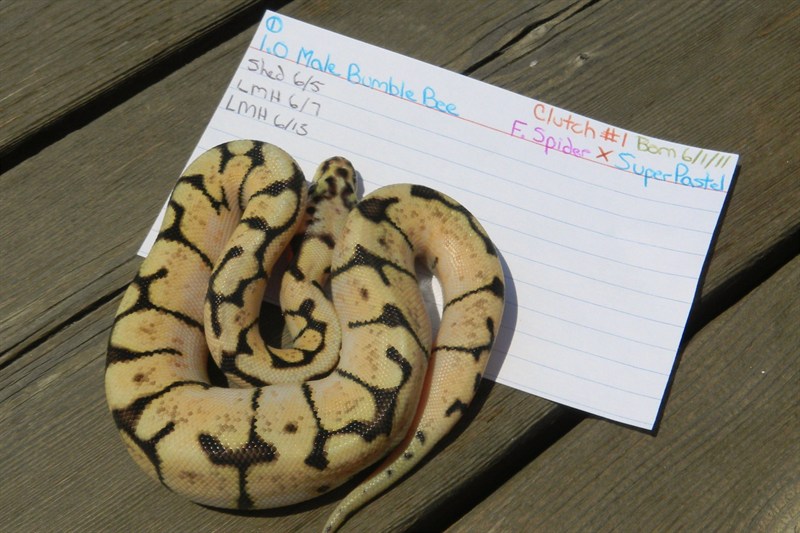 ①
1.0 Male Bumble Bee
Shed 6/5
LMH 6/7
LMH 6/15
Clutch #1 Born 6/1/11
F. Spider x Super Pastel